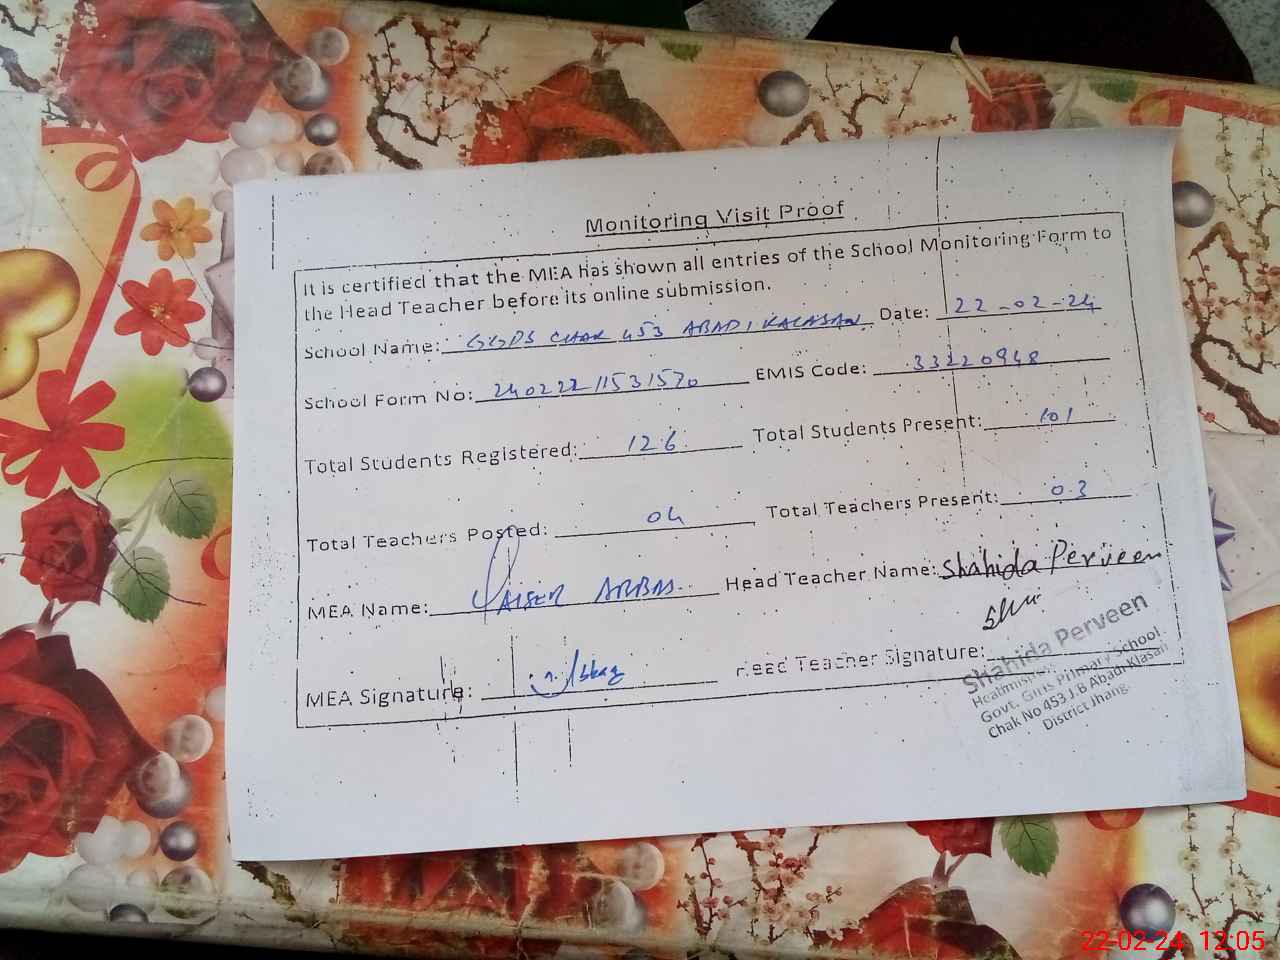 Monitoring Visit Proof
It is certified that the MEA has shown all entries of the School Monitoring Form to
the Head Teacher before its online submission.
School Name: GGPS CHAK 453 ABADI KALASAN Date: 22-02-24
School Form No: 24022211531570 EMIS Code: 33220948
Total Students Registered: 126 Total Students Present: 101
Total Teachers Posted: 04 Total Teachers Present: 03
MEA Name: QAISER ABBAS Head Teacher Name: Shahida Perveen
MEA Signature: Head Teacher Signature:
Shahida Perveen
Headmistress
Govt. Girls Primary School
Chak No 453 J.B Abadi Klasan
District Jhang.
22-02-24 12:05